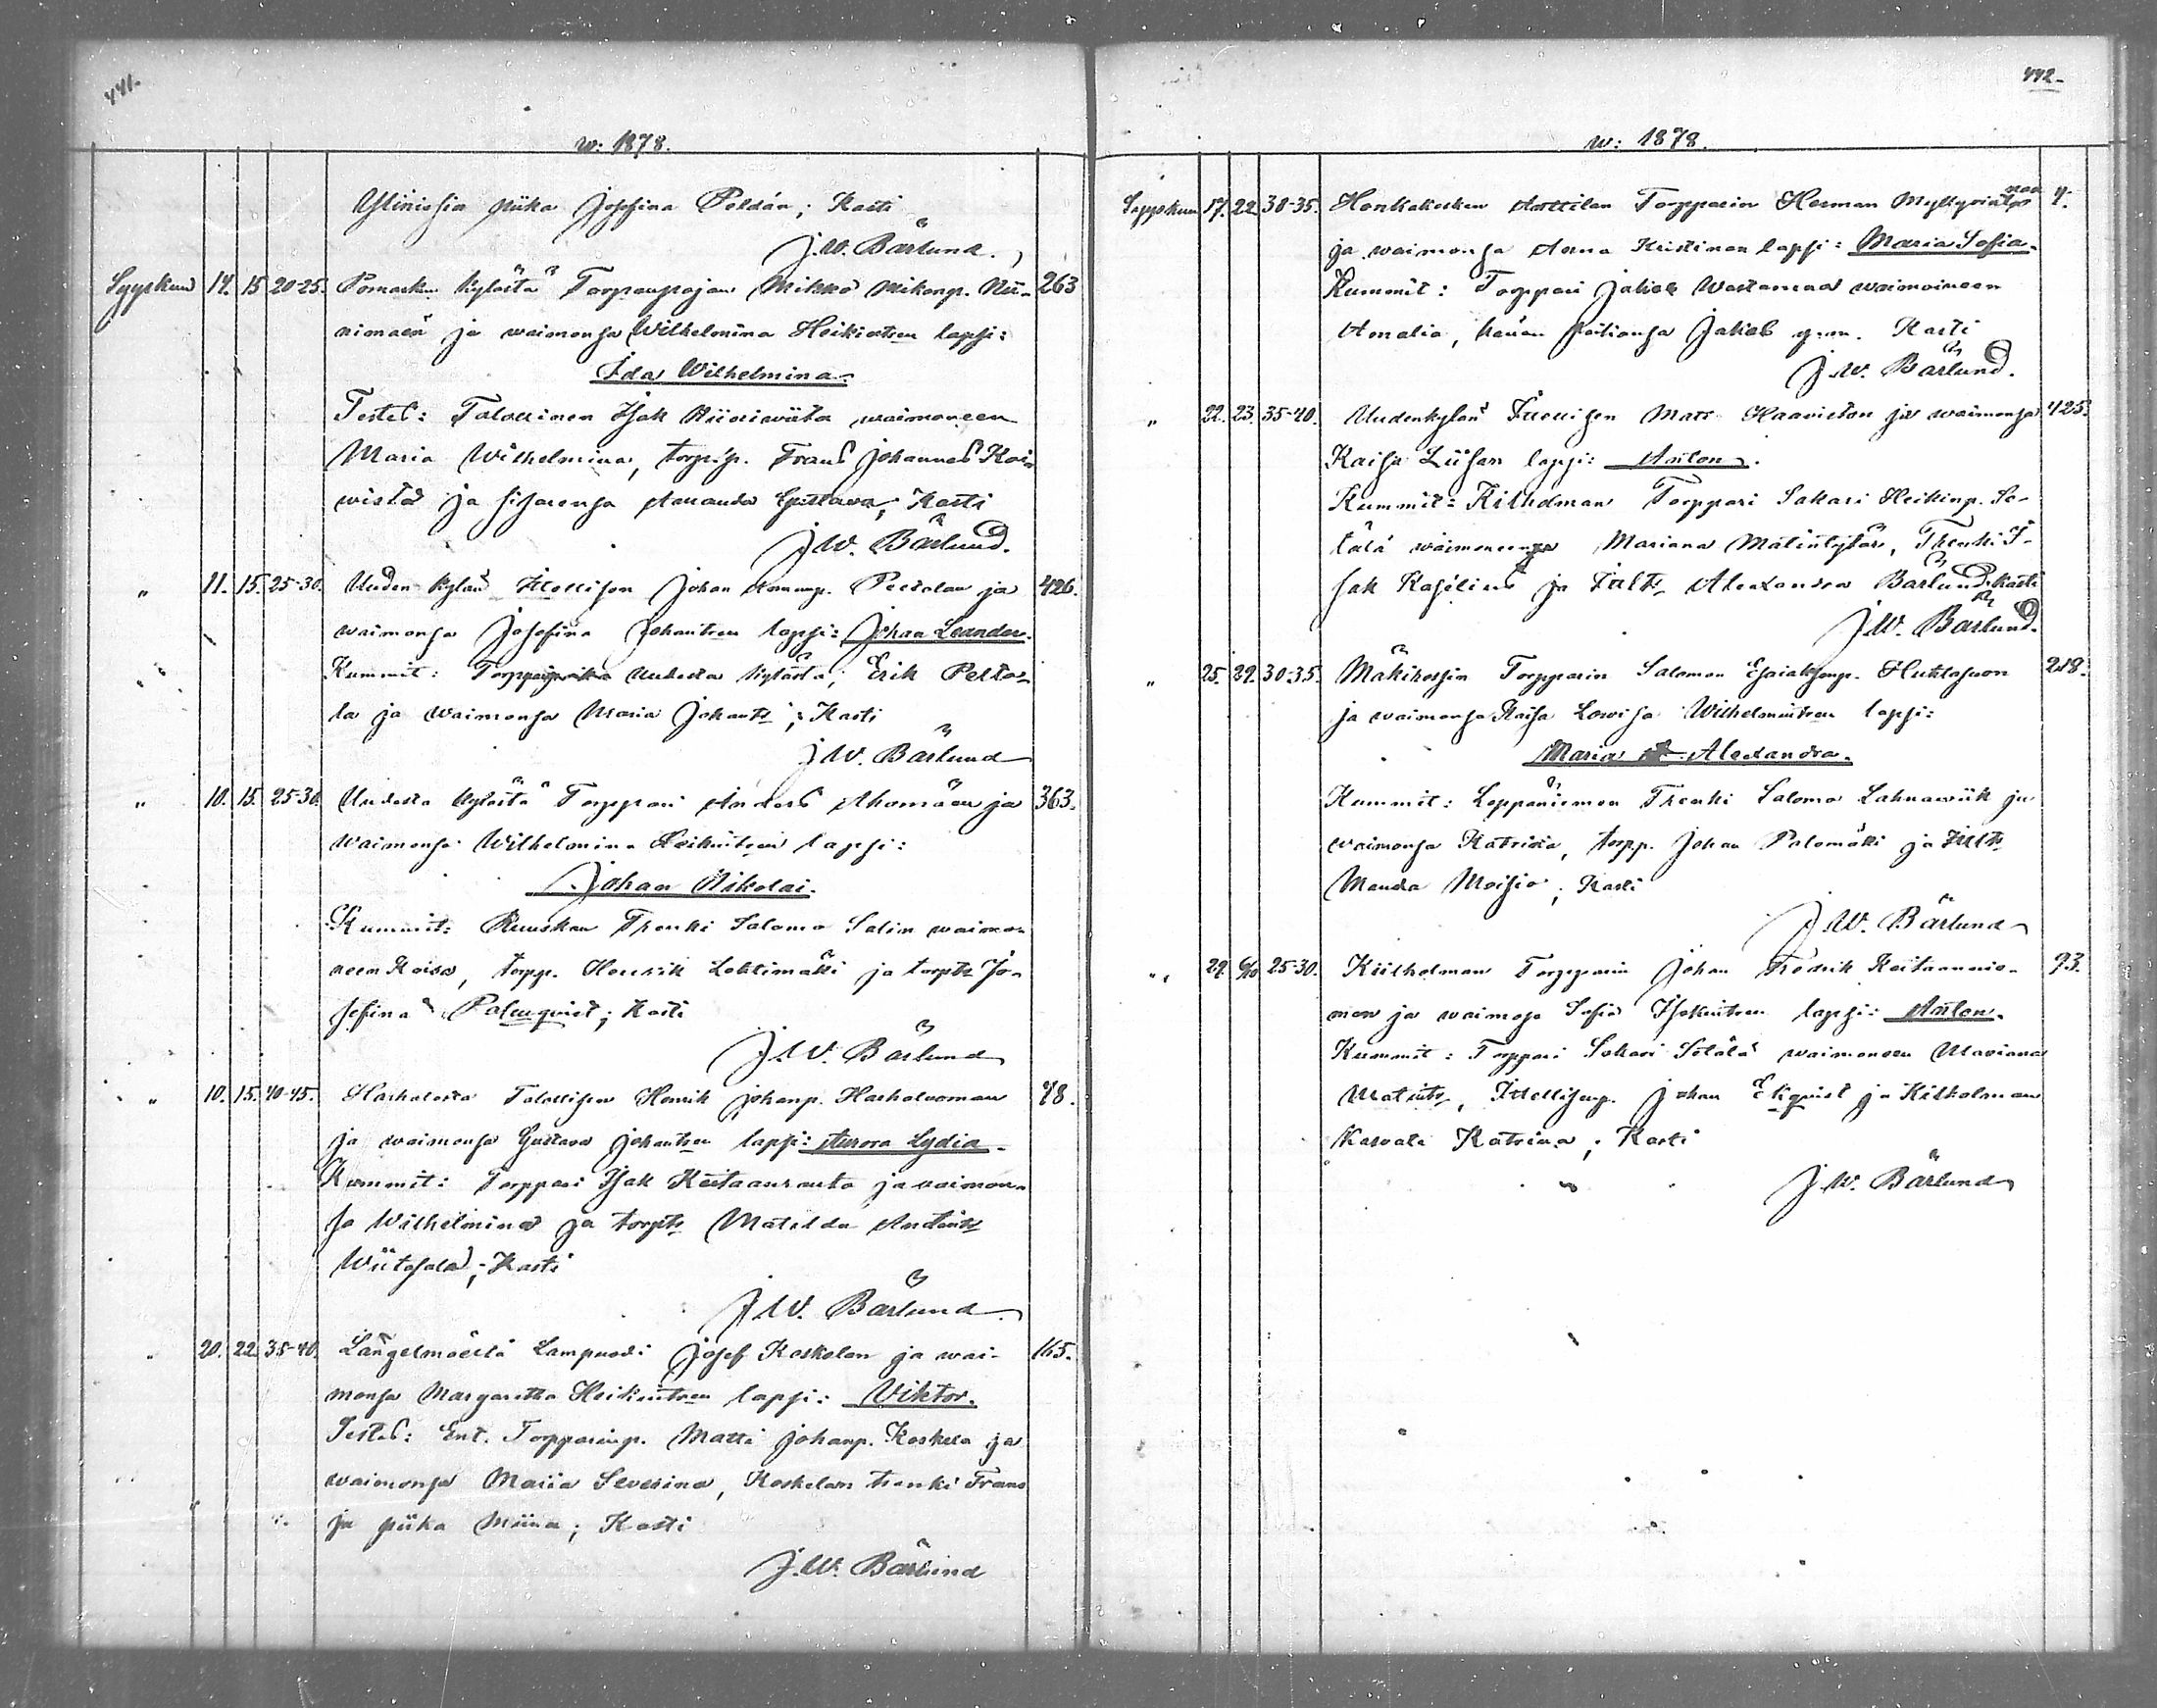 441.
w: 1878.
piika Josefina Peldán; Kasti
J. W. Bärlund.
Syyskuu 14. 15 20-25. Pomarkun kylästä Torpanpojan Mikko Mikonp. Nii- 263
nimaen ja waimonsa Wilhelmina Heikintren lapsi:
Ida Wilhelmina.
Testes: Talollinen Isak waimoneen
Maria Wilhelmina, torp.p. Frans Johannes Koi-
wisto ja sisarensa Amanda Gustava; Kasti
J. W. Bärlund.
" 11. 15. 25-30. Uuden kylän Itsellisen Johan Peltolan ja 426.
waimonsa Josefina Johantren lapsi: Johan Leander.
Kummit: Uudesta kylästä, Erik Pelto-
la ja waimonsa Maria Johants; Kasti
J. W. Bärlund
" 10. 15. 25-30. Uudesta kylästä Torppari Anders Ahomäen ja 363.
waimonsa Wilhelmina Heikintren lapsi:
Johan Nikolai.
Kummit: Ruuskan Trenki Salomo Salin waimo-
neen Kaisa, torpp. Henrik Lehtimäki ja torpts Jo-
sefina Palmqvist; Kasti
J. W. Bärlund
" 10. 15. 40-45. Harhalasta Talollisen Henrik Johanp. Harhalaoman 48.
ja waimonsa Gustava Johantren lapsi: Aurora Lydia.
Kummit: Torppari Isak Keitaanranta ja waimon-
sa Wilhelmina ja torpts Matilda Antints
Wiitasala; Kasti
J. W. Bärlund.
" 20. 22. 35-40. Längelmäeltä Lampuodi Josef Koskelan ja wai- 165.
monsa Margaretha Heikintren lapsi: Viktor.
Testes: Ent. Torpparinp. Matti Johanp. Koskela ja
waimonsa Maria Severina, Koskelan trenki Frans
ja piika Miina; Kasti
J. W. Bärlund
442.
w: 1878.
Syyskuu 17. 22. 30-35. Honkakosken Anttilan Torpparin Herman 4.
ja waimonsa Anna Kristinan lapsi: Maria Sofia.
Kummit: Torppari Jakob Wastamaa waimoineen
Amalia, hänen poikansa Jakob Kasti
J. W. Bärlund.
" 22. 23. 35-40. Uudenkylän Itsellisen Mats Haaviston ja waimonsa 425.
Kaisa Liisan lapsi: Anton.
Kummit: Kiilholman Torppari Sakari Heikinp. So-
tälä waimoneensa Mariana Matintytär, Trenki I-
sak Kasélius ja Itselts Alexandra Bärlund. Kasti
J. W. Bärlund.
" 25. 29. 30-35. Mäkikosķin Torpparin Salomon Esaiaksenp. Huhtasuon 218.
ja waimonsa Kaisa Lowisa Wilhelmintren lapsi:
Maria Alexandra.
Kummit: Leppäniemen Trenki Salomo Lahnawiik ja
waimonsa Katriina, torpp. Johan Palomäki ja Itselts
Manda Moisio; Kasti
J. W. Bärlund
" 29. 6/10 25-30. Kiilholman Torpparin Johan Fredrik Keitaannie- 93.
men ja waimosa Sofia Isakintren lapsi: Anton.
Kummit: Torppari Sakari Sotälä waimoneen Mariana
Matints, Itsellisenp. Johan Ekqvist ja Kiilholman
Kasvati Katriina; Kasti
J. W. Bärlund